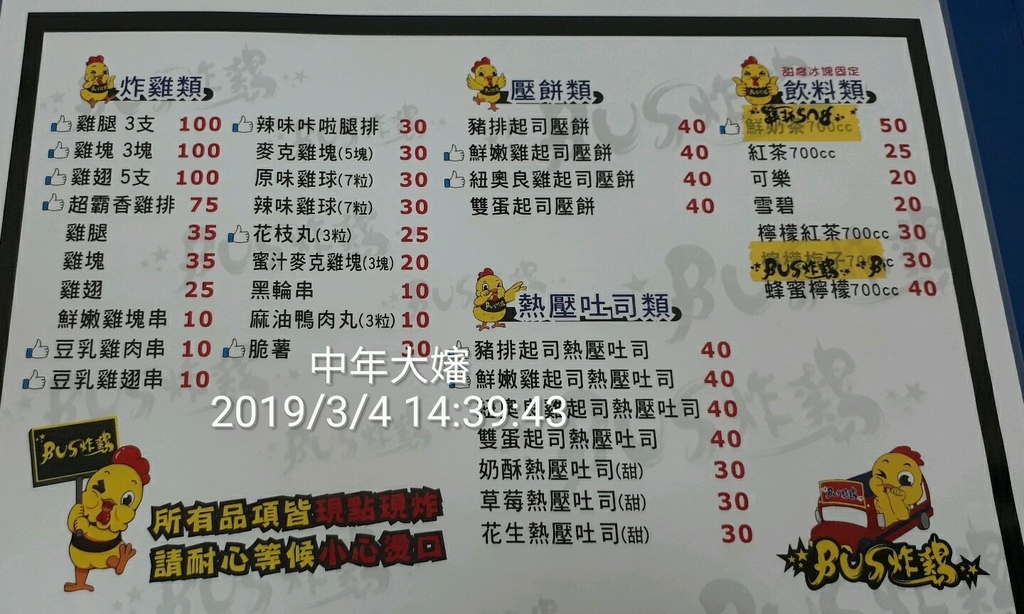 炸雞類
雞腿 3支 100
雞塊 3塊 100
雞翅 5支 100
超霸香雞排 75
雞腿 35
雞塊 35
雞翅 25
鮮嫩雞塊串 10
豆乳雞肉串 10
豆乳雞翅串 10
辣味咔啦腿排 30
麥克雞塊(5塊) 30
原味雞球(7粒) 30
辣味雞球(7粒) 30
花枝丸(3粒) 25
蜜汁麥克雞塊(3塊) 20
黑輪串 10
麻油鴨肉丸(3粒) 10
脆薯 30
壓餅類
豬排起司壓餅 40
鮮嫩雞起司壓餅 40
紐奧良雞起司壓餅 40
雙蛋起司壓餅 40
熱壓吐司類
豬排起司熱壓吐司 40
鮮嫩雞起司熱壓吐司 40
紐奧良雞起司熱壓吐司 40
雙蛋起司熱壓吐司 40
奶酥熱壓吐司(甜) 30
草莓熱壓吐司(甜) 30
花生熱壓吐司(甜) 30
甜度冰塊固定
飲料類
BUS炸鷄
鮮奶茶700cc 50
紅茶700cc 25
可樂 20
雪碧 20
檸檬紅茶700cc 30
BUS炸鷄 30
蜂蜜檸檬700cc 40
中年大嬸
2019/3/4 14:39:43
BUS炸鷄
所有品項皆現點現炸
請耐心等候小心燙口
BUS炸鷄